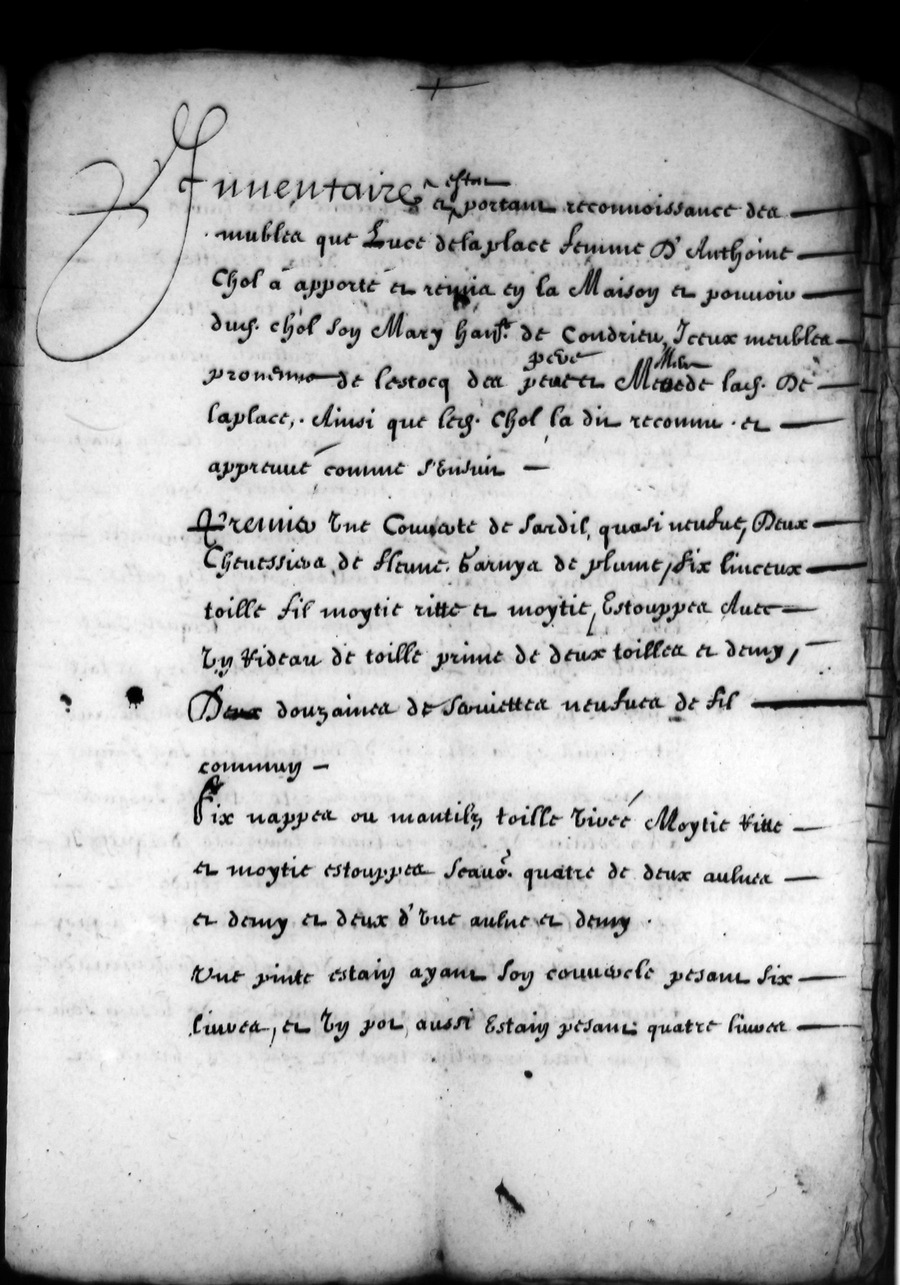 Inventaire estat
et portant reconnoissance des
mubles que Luce delaplace femme d'Anthoine
Chol à apporté et remis en la Maison et pouvoir
dud. chol son Mary hant. de Condrieu, Iceux meubles
père Mere
provenans de lestocq des pere et Mere de lad. De
laplace, Ainsi que led. Chol la dit reconnu et
appreuvé comme s'Ensuit
Premier Une Couverte de sardil, quasi neufve, Deux
Chevessiers de fleune garnys de plume, six linceux
toille fil moytie ritte et moytie, Estouppes Avec
Un Rideau de toille prime de deux toilles et demy,
Deux douzaines de serviettes neufves de fil
commun
Six nappes ou mantilz toille Tireé Moytie Ritte
et moytie estouppes scavor. quatre de deux aulnes
et demy et deux d'Une aulne et demy.
Une pinte estain ayant son couvercle pesant six
livres, et Un pot aussi Estain pesant quatre livres